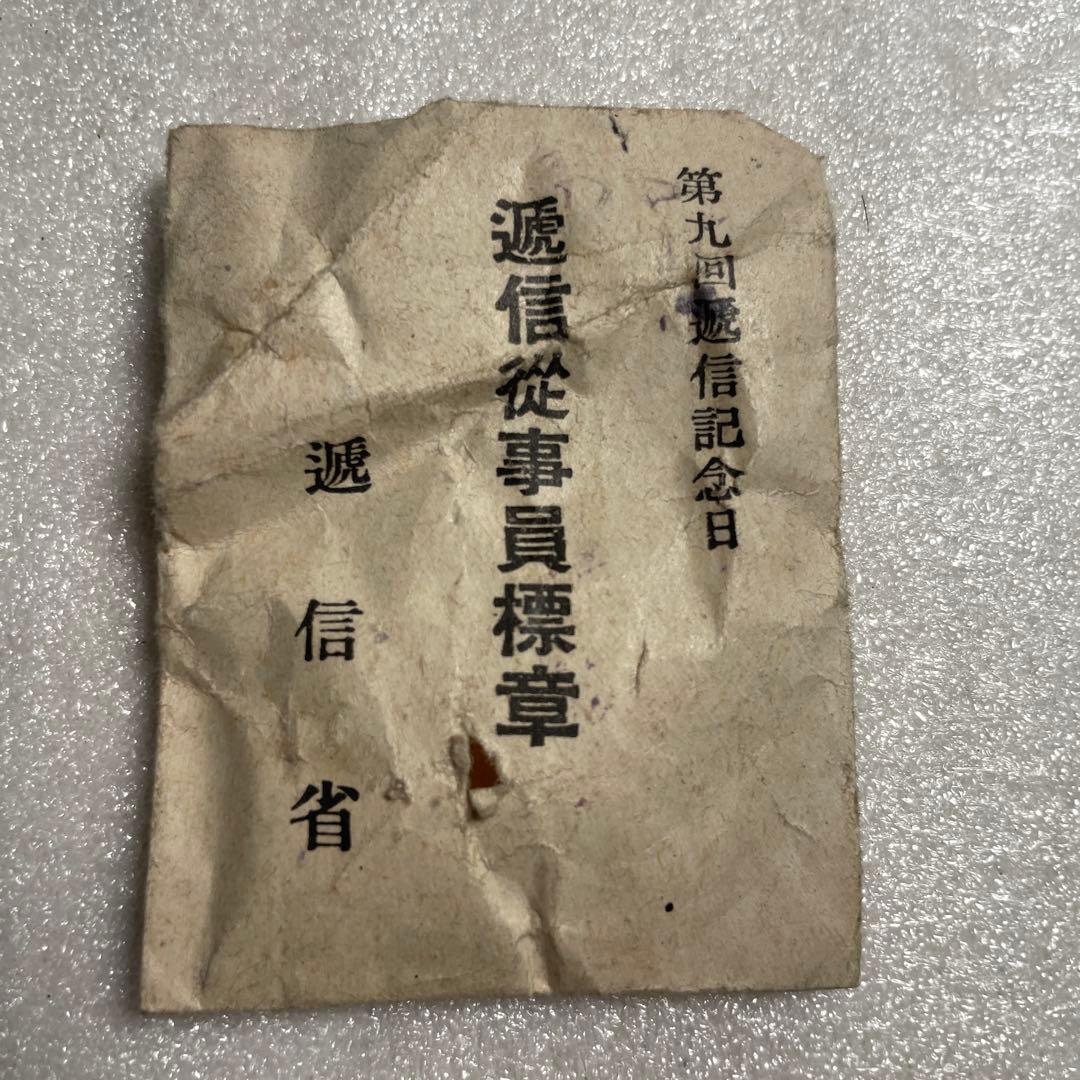 第九回遞信記念日
遞信從事員標章
遞信省